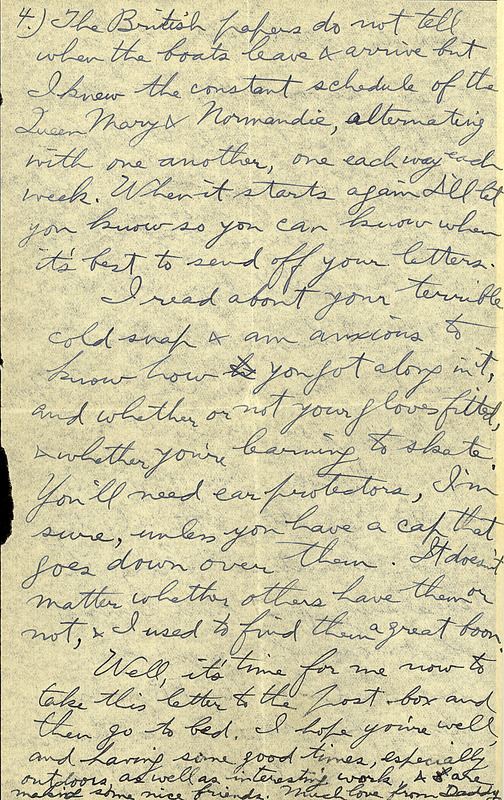 4.) The British papers do not tell
when the boats leave & arrive but
I knew the constant schedule of the
Queen Mary & Normandie, alternating
with one another, one each way each
week. When it starts again I'll let
you know so you can know when
it's best to send off your letters.
I read about your terrible
cold snap & am anxious to
know how you got along in it,
and whether or not your gloves fitted,
& whether you're learning to skate.
You'll need ear protectors, I'm
sure, unless you have a cap that
goes down over them. It doesn't
matter whether others have them or
not, & I used to find them a great boon.
Well, it's time for me now to
take this letter to the post-box and
then go to bed. I hope you're well
and having some good times, especially
outdoors, as well as interesting work, & are
making some nice friends. Much love from Daddy